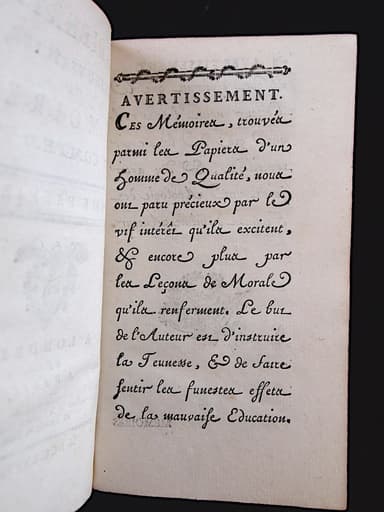 AVERTISSEMENT.
Ces Mémoires, trouvés
parmi les Papiers d'un
homme de Qualité, nous
ont paru précieux par le
vif intérêt qu'ils excitent,
& encore plus par
les Leçons de Morale
qu'ils renferment. Le but
de l'Auteur est d'instruire
la Jeunesse, & de faire
sentir les funestes effets
de la mauvaise Education.